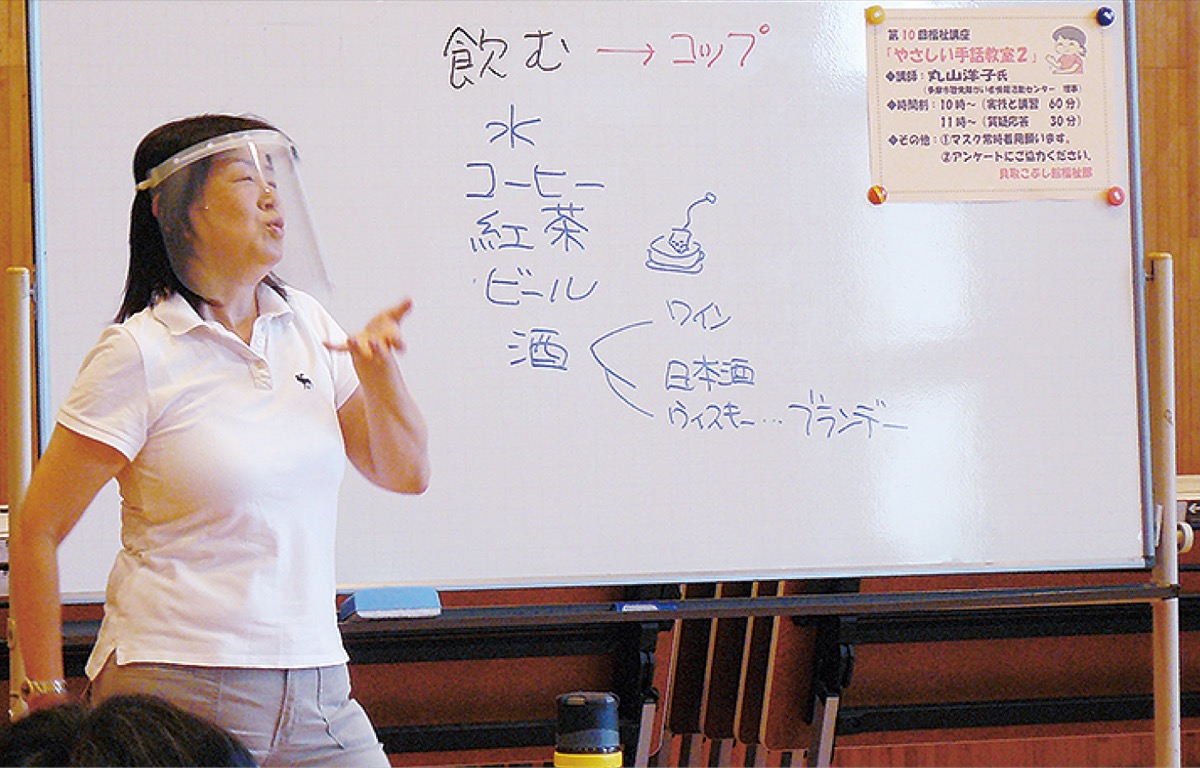 飲む → コップ
水
コーヒー
紅茶
ビール
酒
ワイン
日本酒
ウィスキー…ブランデー
第10回福祉講座
「やさしい手話教室2」
◆講師：丸山洋子氏
(多摩市聴覚障がい者情報活動センター 理事)
◆時間割：10時～(実技と講習 60分)
11時～(質疑応答 30分)
◆その他：①マスク常時着用願います。
②アンケートにご協力ください。
貝取こぶし館福祉部